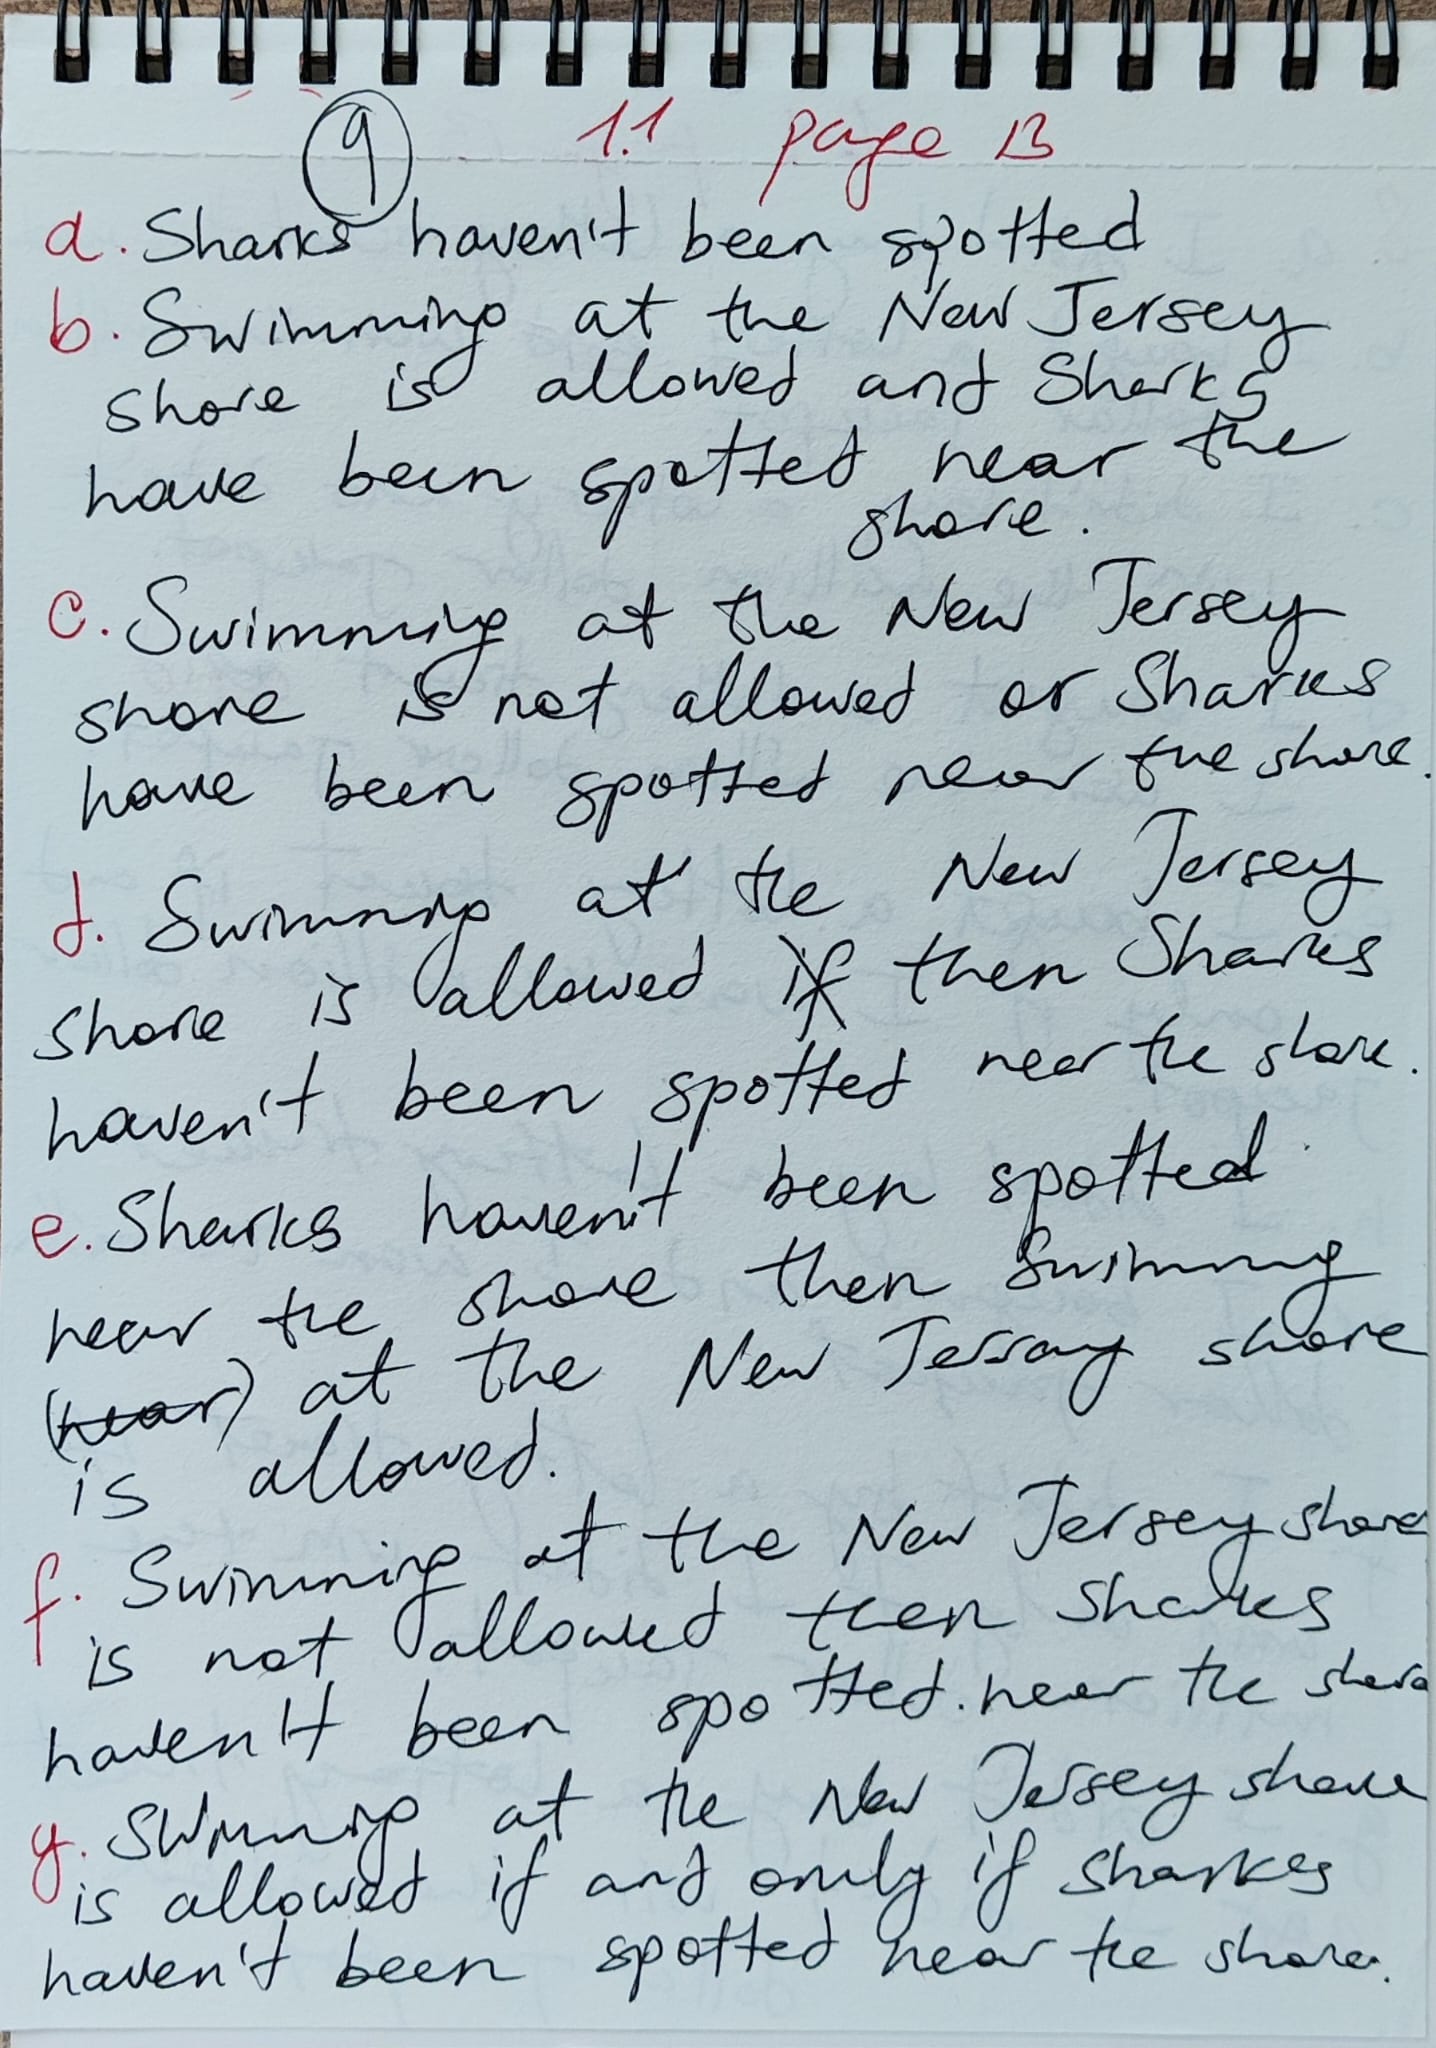 9 1.1 page 13
a. Sharks haven't been spotted
b. Swimming at the New Jersey
shore is allowed and Sharks
have been spotted near the
shore.
c. Swimming at the New Jersey
shore is not allowed or Sharks
have been spotted near the shore.
d. Swimming at the New Jersey
shore is allowed if then Sharks
haven't been spotted near the shore.
e. Sharks haven't been spotted
near the shore then swimming
(near) at the New Jersay shore
is allowed.
f. Swimming at the New Jersey shore
is not allowed then Sharks
haven't been spotted. near the shore
g. Swimming at the New Jersey shore
is allowed if and only if sharkes
haven't been spotted near the shore.